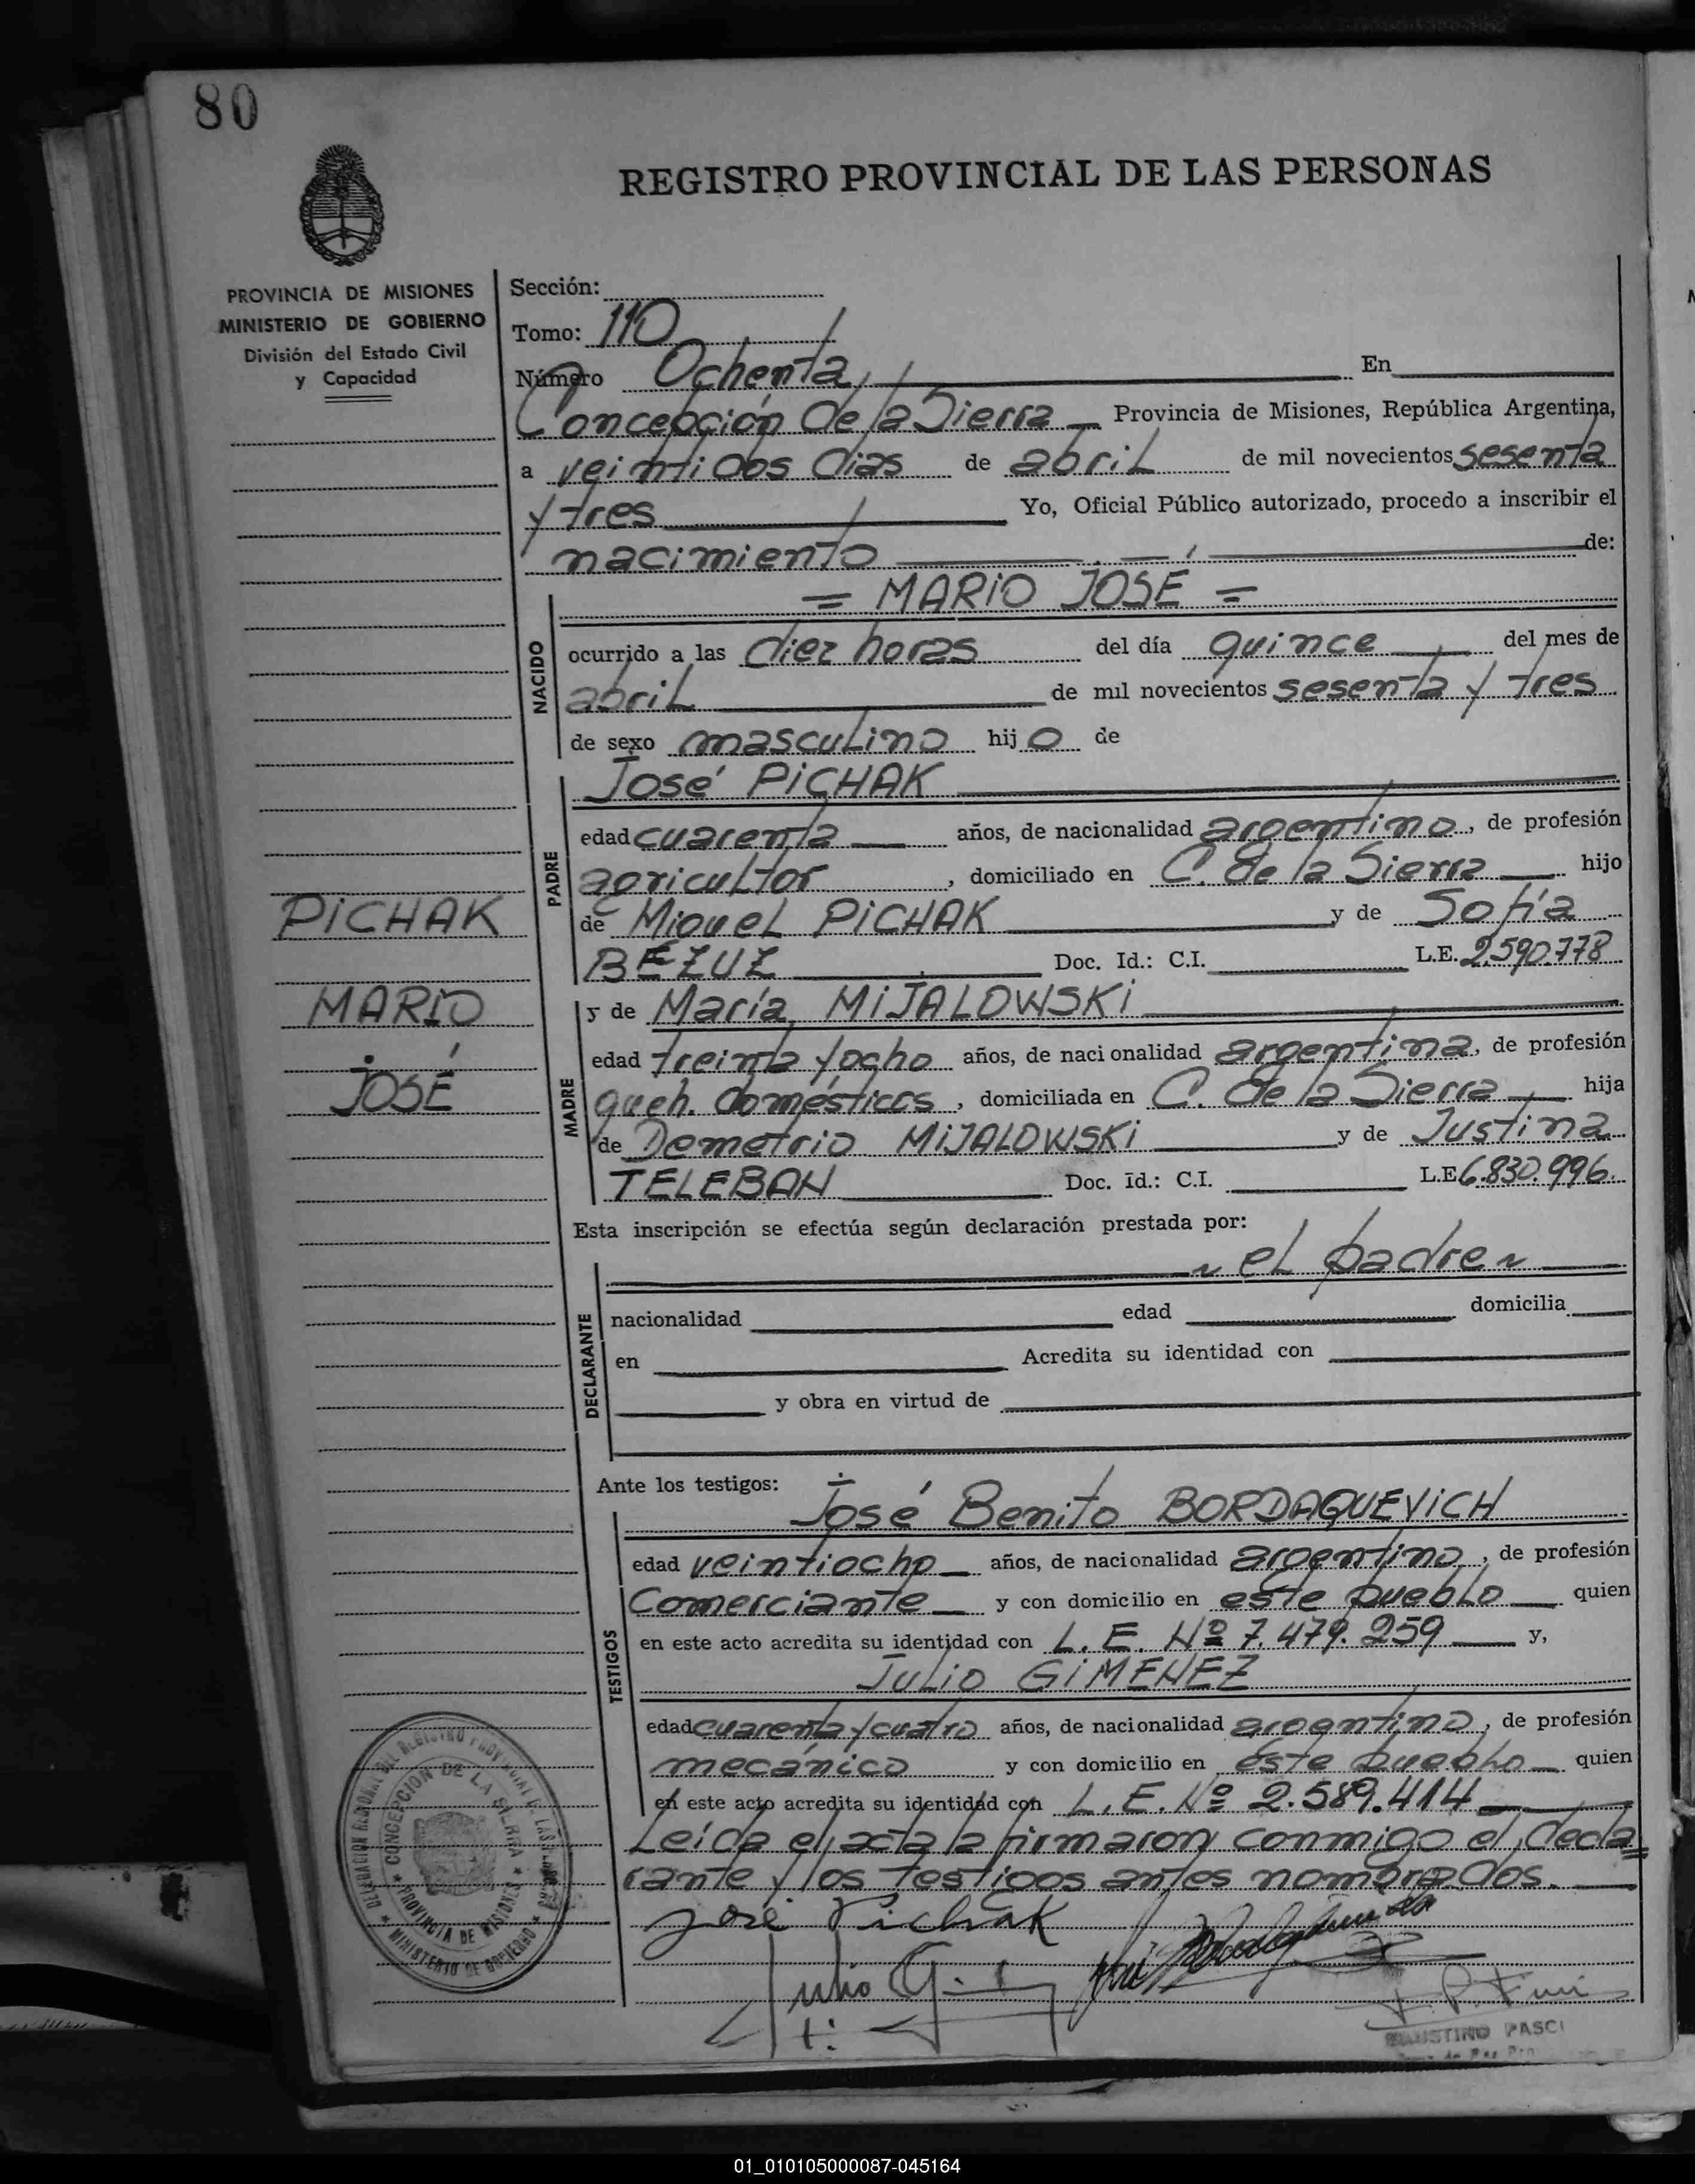 80
REGISTRO PROVINCIAL DE LAS PERSONAS
PROVINCIA DE MISIONES
MINISTERIO DE GOBIERNO
División del Estado Civil
y Capacidad
Sección:
Tomo: 110
Número Ochenta, En
Concepción de la Sierra Provincia de Misiones, República Argentina,
a veintidos dias de abril de mil novecientos sesenta
y tres Yo, Oficial Público autorizado, procedo a inscribir el
nacimiento de:
= MARIO JOSÉ =
NACIDO
ocurrido a las diez horas del día quince del mes de
abril de mil novecientos sesenta y tres
de sexo masculino hijo de
José PICHAK
PADRE
edad cuarenta años, de nacionalidad argentino, de profesión
agricultor, domiciliado en C. de la Sierra hijo
de Miguel PICHAK y de Sofía
BEZUZ Doc. Id.: C.I. L.E. 2.590.778
PICHAK
MARIO
JOSÉ
MADRE
y de María MIJALOWSKI
edad treinta y ocho años, de nacionalidad argentina, de profesión
queh. domésticos, domiciliada en C. de la Sierra hija
de Demetrio MIJALOWSKI y de Justina
TELEBAN Doc. Id.: C.I. L.E 6.830.996.
Esta inscripción se efectúa según declaración prestada por:
~ el padre ~
DECLARANTE
nacionalidad edad domicilia
en Acredita su identidad con
y obra en virtud de
Ante los testigos: José Benito BORDAQUEVICH
TESTIGOS
edad veintiocho años, de nacionalidad argentino, de profesión
Comerciante y con domicilio en este pueblo quien
en este acto acredita su identidad con L. E. Nº 7.479.259 y,
Julio GIMENEZ
edad cuarenta y cuatro años, de nacionalidad argentino, de profesión
mecánico y con domicilio en este pueblo quien
en este acto acredita su identidad con L. E. Nº 2.589.414
Leída el acta la firmaron conmigo el decla=
rante y los testigos antes nombrados.
José Pichak
Julio
DELEGACION REGIONAL DEL REGISTRO PROVINCIAL DE LAS PERSONAS
CONCEPCION DE LA SIERRA
PROVINCIA DE MISIONES
MINISTERIO DE GOBIERNO
PASCI
01_010105000087-045164